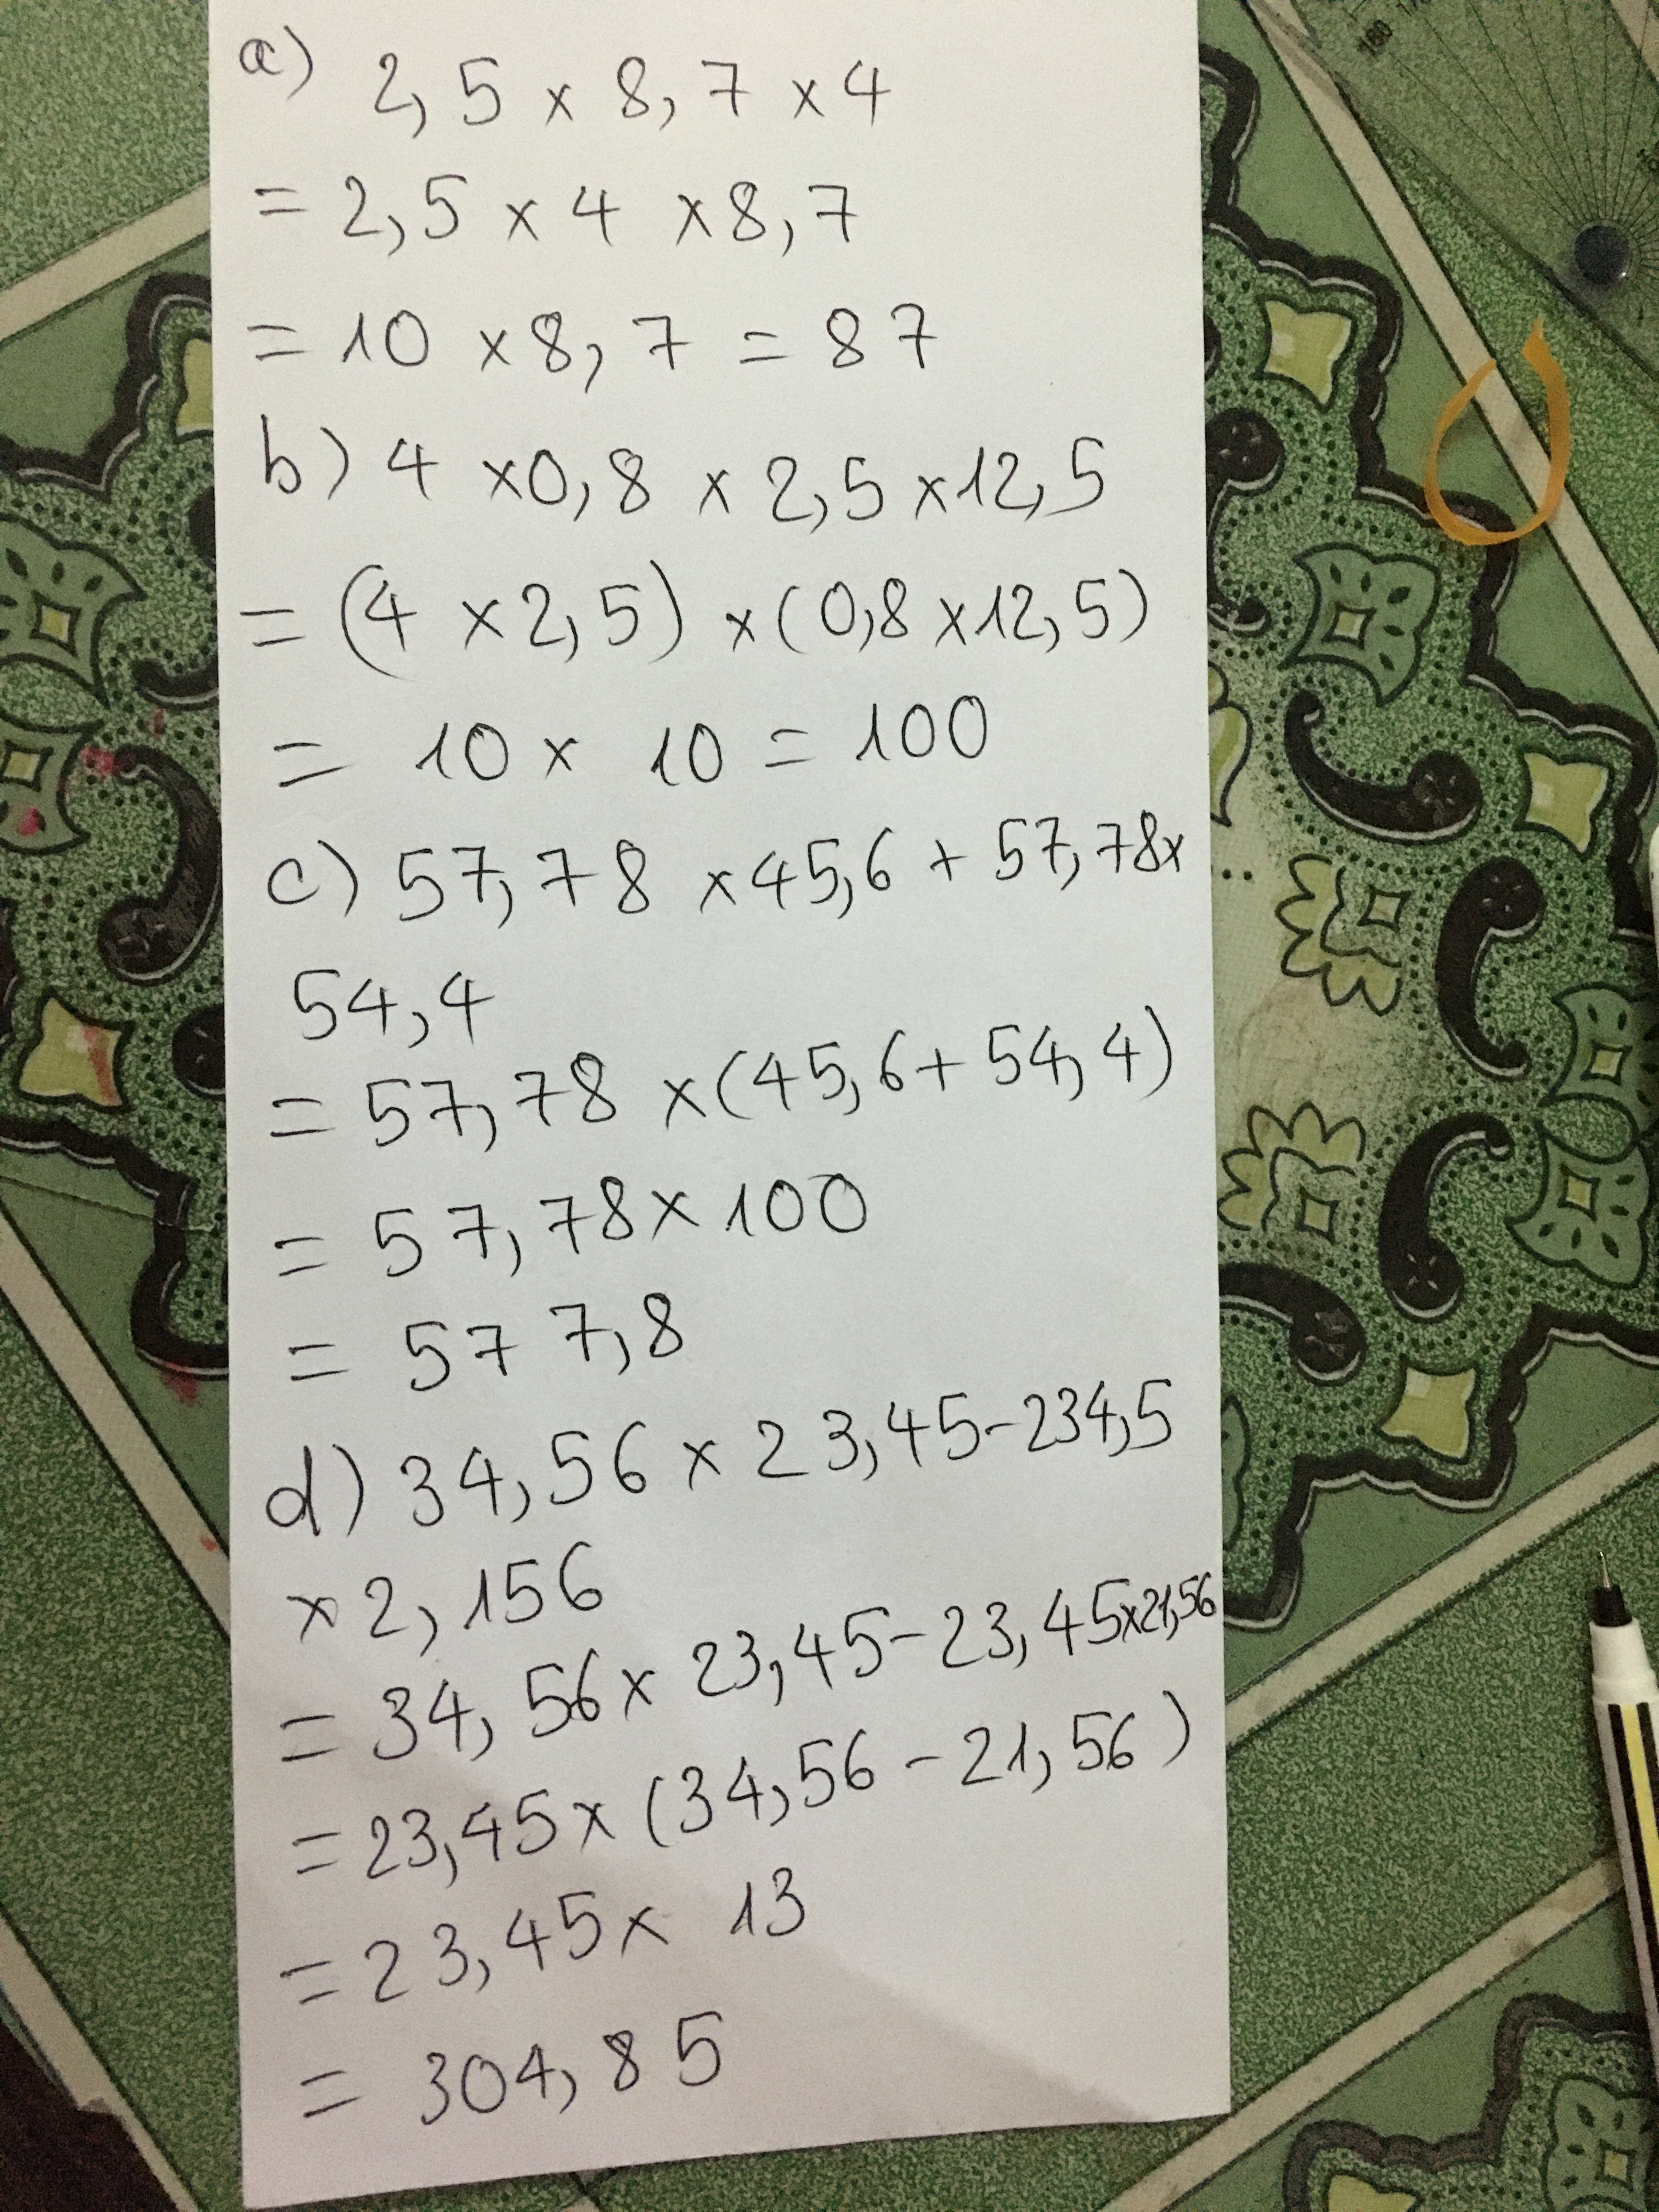 a) 2,5 x 8,7 x 4
= 2,5 x 4 x 8,7
= 10 x 8,7 = 87
b) 4 x 0,8 x 2,5 x 12,5
= (4 x 2,5) x (0,8 x 12,5)
= 10 x 10 = 100
c) 57,78 x 45,6 + 57,78 x
54,4
= 57,78 x (45,6 + 54,4)
= 57,78 x 100
= 577,8
d) 34,56 x 23,45 - 234,5
x 2,156
= 34,56 x 23,45 - 23,45 x 21,56
= 23,45 x (34,56 - 21,56)
= 23,45 x 13
= 304,85